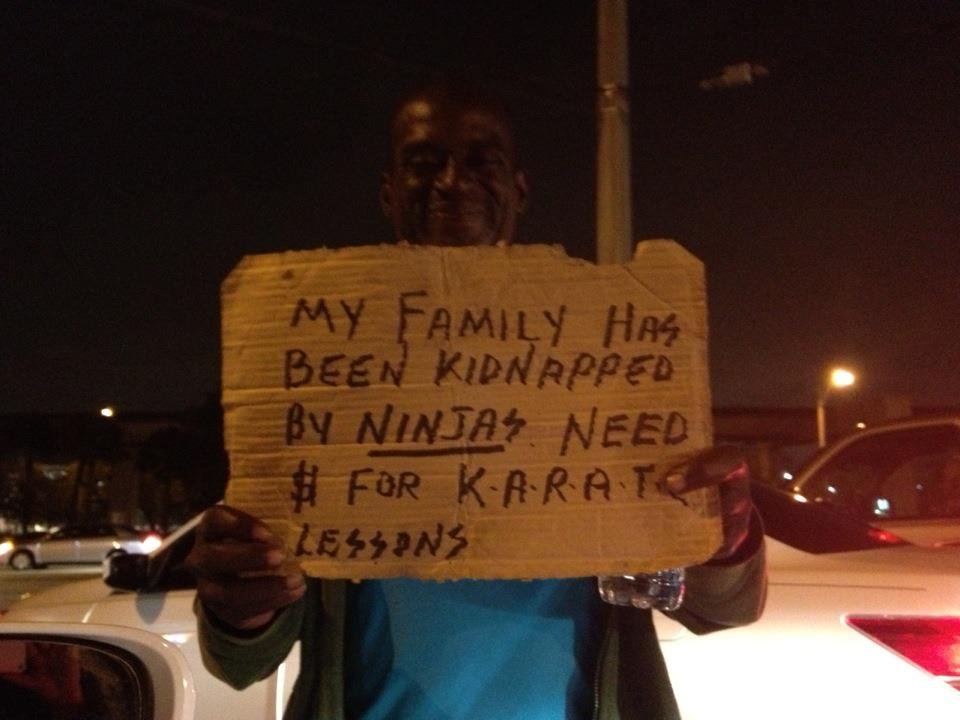 MY FAMILY HAS
BEEN KIDNAPPED
BY NINJAS. NEED
$ FOR K.A.R.A.T.E
LESSONS